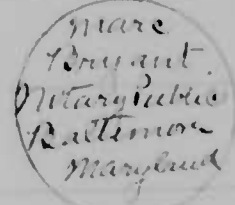 Marc
Bryant
Notary Public
Baltimore
Maryland